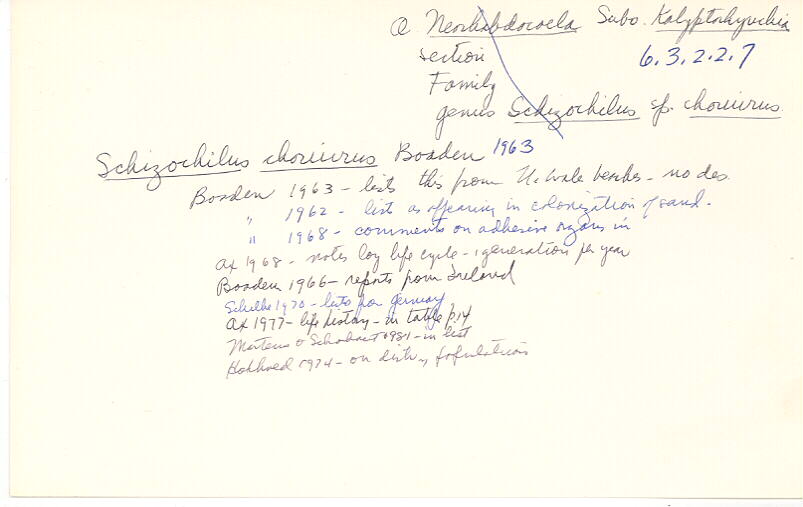 O Neorhabdocoela Subo. Kalyptorhynchia
section 6.3.2.2.7
Family
genus Schizochilus sp. choriurus
Schizochilus choriurus Boaden 1963
Boaden 1963 - lists this from N. Wale beaches - no des.
" 1962 - list as appearing in colonization of sand.
" 1968 - comments on adhesive organs in
Ax 1968 - notes log life cycle - 1 generation per year
Boaden 1966 - reports from Ireland
1970 - lists for Germany
Ax 1977 - life history - in table p. 14
Martens & Schockaert 1981 - in list
1974 - on distr. populations